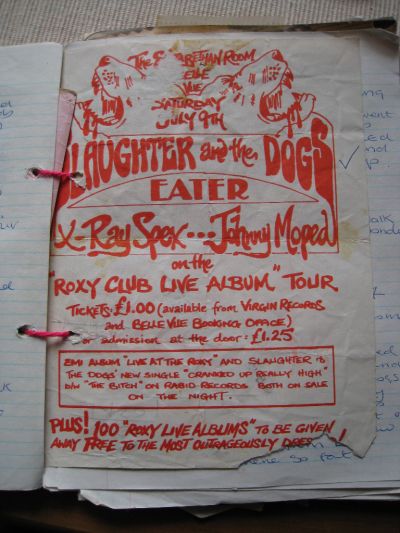 The Elizabethan Room
Belle
Vue
Saturday
July 9th
SLAUGHTER and the DOGS
EATER
X-Ray Spex ... Johnny Moped
on the
"ROXY CLUB LIVE ALBUM" TOUR
TICKETS: £1.00 (available from VIRGIN RECORDS
and BELLE VUE BOOKING OFFICE)
or admission at the door: £1.25
EMI ALBUM "LIVE AT THE ROXY" AND SLAUGHTER &
THE DOGS' NEW SINGLE "CRANKED UP REALLY HIGH"
b/w "THE BITCH" ON RABID RECORDS BOTH ON SALE
ON THE NIGHT.
PLUS! 100 "ROXY LIVE ALBUMS" TO BE GIVEN
AWAY FREE TO THE MOST OUTRAGEOUSLY DRESSED!